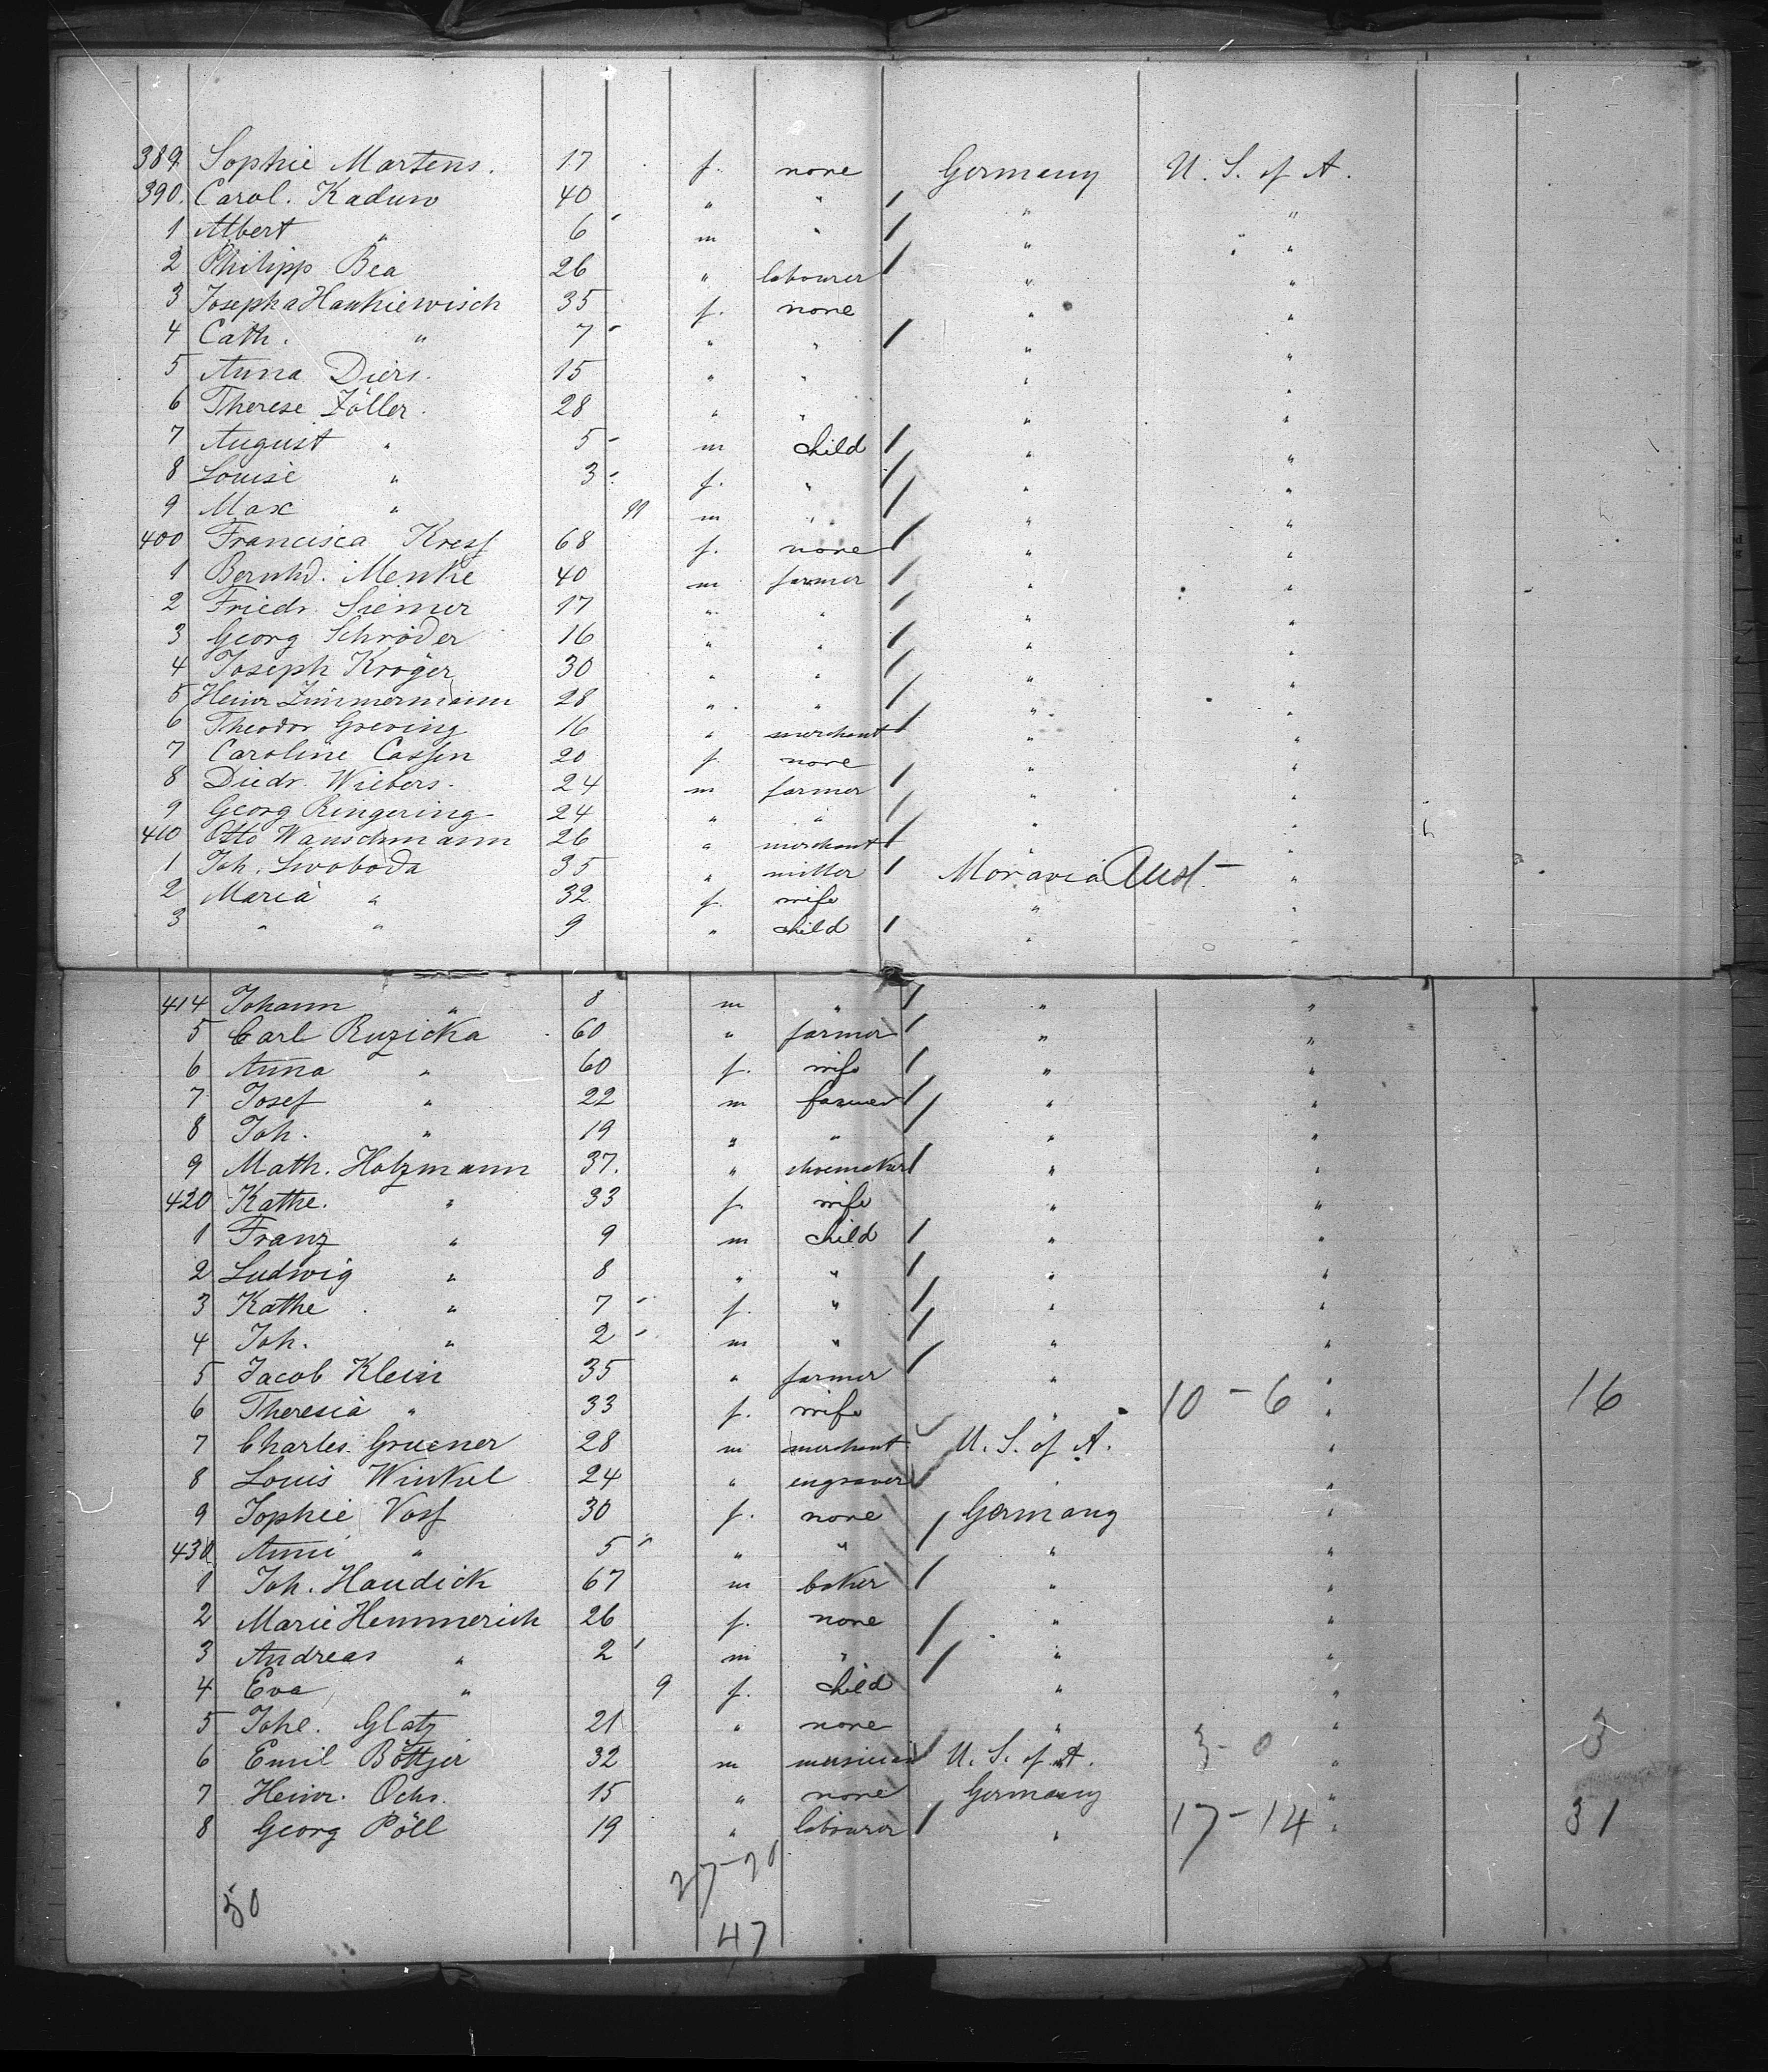 389. Sophie Martens. 17 f. none Germany U. S. of A.
390. Carol. Kaduw 40 " " / " "
1 Albert " 6 m " / " "
2 Philipp Bea 26 " labourer / " "
3 Josepha Hankiewisch 35 f. none " "
4 Cath. " 7 " " / " "
5 Anna Diers. 15 " " " "
6 Therese Zöller. 28 " " " "
7 August " 5 m child / " "
8 Louise " 3 f. " / " "
9 Max " m " / " "
400 Francisca Kress 68 f. none / " "
1 Bernhd. Menke 40 m farmer / " "
2 Friedr. Siemer 17 " " / " "
3 Georg Schröder 16 " " / " "
4 Joseph Kröger 30 " " / " "
5 Heinr Zimmermann 28 " " / " "
6 Theodor Greving 16 " merchant / " "
7 Caroline Cassen 20 f. none " "
8 Diedr. Wiebers. 24 m farmer / " "
9 Georg Ringering 24 " " / " "
410 Otto Wanschmann 26 " merchant / " "
1 Joh. Swoboda 35 " miller / Moravia Aust. "
2 Maria " 32 f. wife " "
3 " " 9 " child / " "
414 Johann " 8 m " / " "
5 Carl Ruzicka 60 " farmer / " "
6 Anna " 60 f. wife / " "
7 Josef " 22 m farmer / " "
8 Joh. " 19 " " / " "
9 Math. Holzmann 37. " shoemaker / " "
420 Kathe. " 33 f. wife " "
1 Franz " 9 m child / " "
2 Ludwig " 8 " " / " "
3 Kathe " 7 f. " / " "
4 Joh. " 2 m " / " "
5 Jacob Klein 35 " farmer / " "
6 Theresia " 33 f. wife " 10 - 6 " 16
7 Charles Gruener 28 m merchant U. S. of A. "
8 Louis Winkel 24 " engraver / " "
9 Sophie Voss 30 f. none / Germany "
430 Anni " 5 " " / " "
1 Joh. Haudick 67 m baker / " "
2 Marie Hemmerich 26 f. none / " "
3 Andreas " 2 m " / " "
4 Eva " 9 f. child " "
5 Johe. Glatz 21 " none " "
6 Emil Böttjer 32 m musician / U. S. of A. 3 - 0 " 3
7 Heinr. Ochs. 15 " none Germany "
8 Georg Pöll 19 " labourer / " 17 - 14 " 31
27-20
50
47